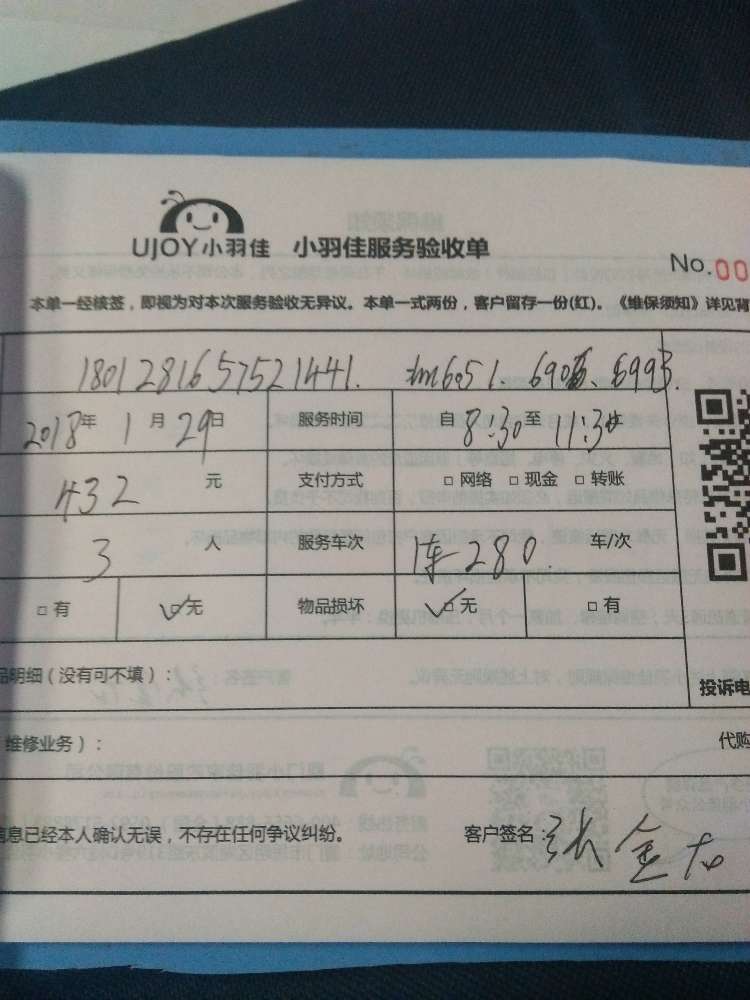 UJOY小羽佳 小羽佳服务验收单
No.00
本单一经核签，即视为对本次服务验收无异议。本单一式两份，客户留存一份(红)。《维保须知》详见背
18012816575521441. 6051. 6993.
2018年 1月 29日 服务时间 自 8:30 至 11:30
432 元 支付方式 □ 网络 □ 现金 □ 转账
3 人 服务车次 280 车/次
□ 有 □ 无 物品损坏 □ 无 □ 有
品明细（没有可不填）：
投诉电
维修业务）： 代购
信息已经本人确认无误，不存在任何争议纠纷。 客户签名：张金